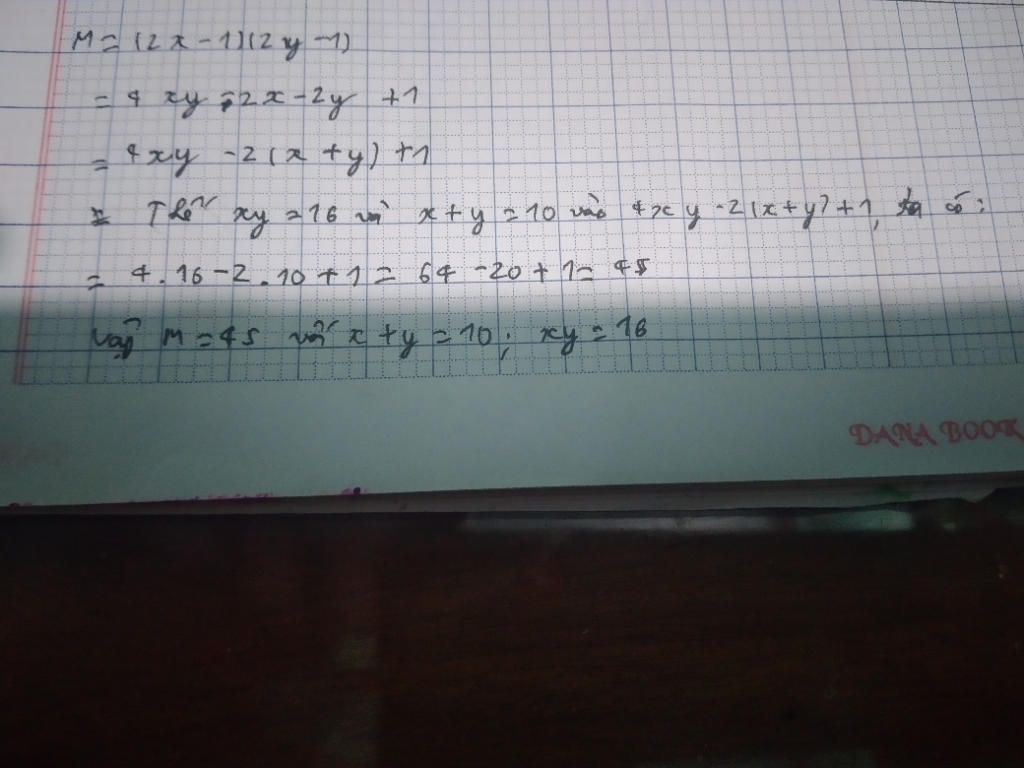 M = (2x - 1)(2y - 1)
= 4xy - 2x - 2y + 1
= 4xy - 2(x + y) + 1
= Thế xy = 16 và x + y = 10 vào 4xy - 2(x + y) + 1, ta có:
= 4 . 16 - 2 . 10 + 1 = 64 - 20 + 1 = 45
Vậy M = 45 với x + y = 10; xy = 16
DANA BOOK